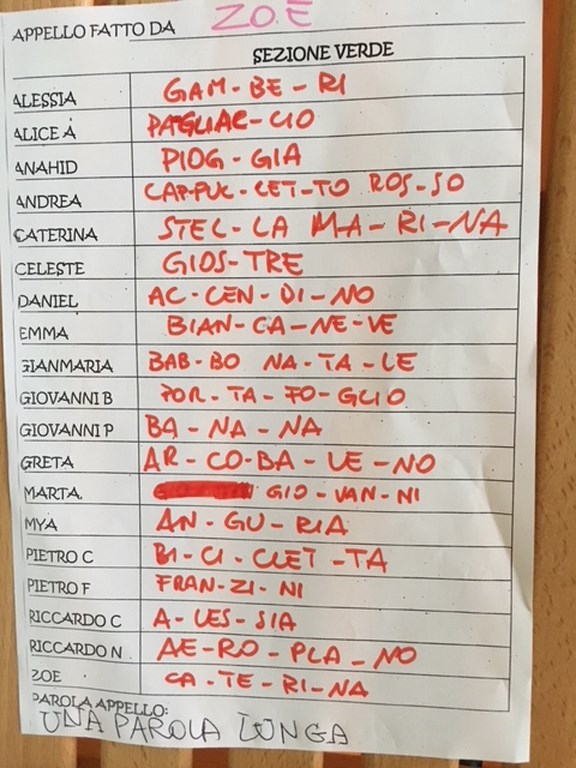 APPELLO FATTO DA ZOE
SEZIONE VERDE
ALESSIA GAM-BE-RI
ALICE A PAGLIAC-CIO
ANAHID PIOG-GIA
ANDREA CAP-PUC-CET-TO ROS-SO
CATERINA STEL-LA MA-RI-NA
CELESTE GIOS-TRE
DANIEL AC-CEN-DI-NO
EMMA BIAN-CA-NE-VE
GIANMARIA BAB-BO NA-TA-LE
GIOVANNI B POR-TA-FO-GLIO
GIOVANNI P BA-NA-NA
GRETA AR-CO-BA-LE-NO
MARTA GIO-VAN-NI
MYA AN-GU-RIA
PIETRO C BI-CI-CLET-TA
PIETRO F FRAN-ZI-NI
RICCARDO C A-LES-SIA
RICCARDO N AE-RO-PLA-NO
ZOE CA-TE-RI-NA
PAROLA APPELLO:
UNA PAROLA LUNGA